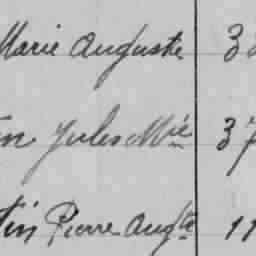 Marie Auguste 3
in Jules Mie 37
tin Pierre Augte 11